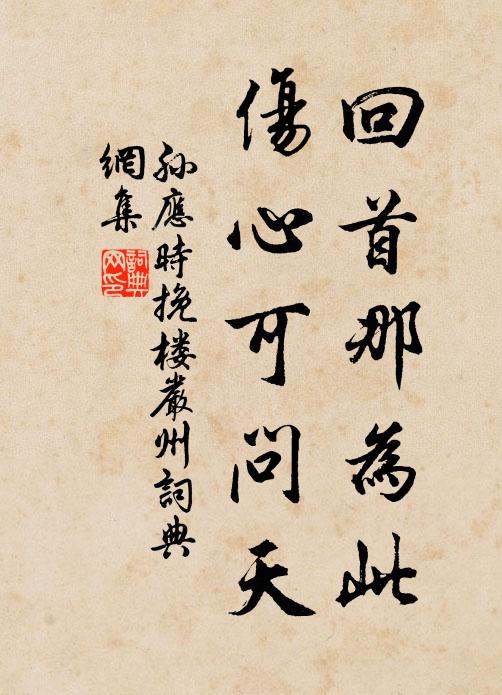 回首那為此
傷心可問天
孫應時挽樓嚴州詞典
網集
詞典
网印